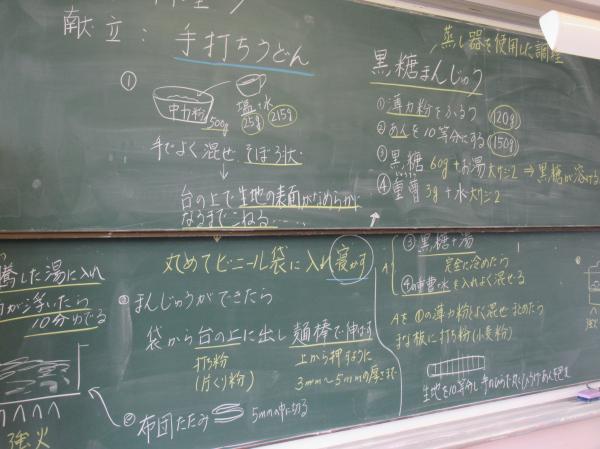 献立： 手打ちうどん
①
中力粉 500g
塩＋水
25g 215g
手でよく混ぜ そぼろ状
↓
台の上で生地の表面がなめらかに
なるまでこねる……
蒸し器を使用した調理
黒糖まんじゅう
①薄力粉をふるう 120g
②あんを10等分にする 150g
③黒糖 60g＋お湯大サジ2 ⇒ 黒糖が溶ける
④重曹 3g＋水大サジ2
丸めてビニール袋に入れ 寝かす
まんじゅうができたら
袋から台の上に出し 麺棒で伸ばす
打ち粉
(片くり粉)
上から押すように
3mm～5mmの厚さまで
布団たたみ 5mmの巾に切る
騰した湯に入れ
が浮いたら
10分ゆでる
強火
A
③黒糖＋湯
完全に冷めたら
④の重曹水を入れよく混ぜる
Aを①の薄力粉とよく混ぜ
まな板に打ち粉(小麦粉)
生地を10等分し